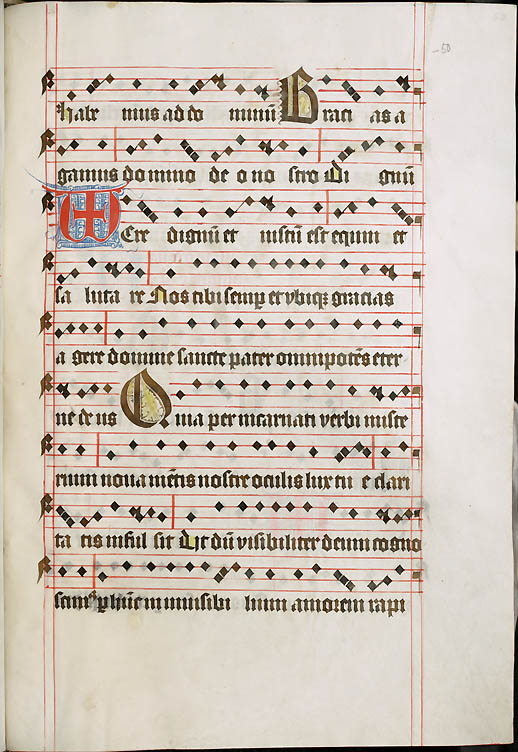 50
habe mus ad do minū Graci as a
gamus do mino de o no stro Di gnū
Vere dignū et iustū est equm et
sa luta re Nos tibi semp et ubiqꝫ gracias
a gere domine sancte pater omnipotēs eter
ne de us Quia per incarnati verbi miste
rium noua mētis nostre oculis lux tu e clari
ta tis inful sit Ut dū visibiliter deum cogno
scimꝰ p hūc in inuisibi lium amorem rapi